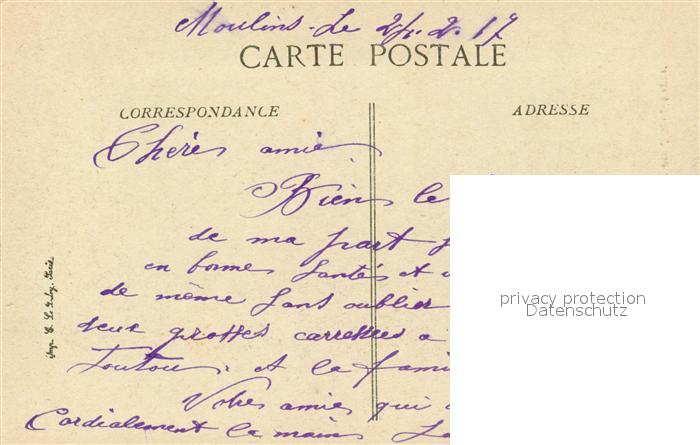 Moulins - Le 24.2.17
CARTE POSTALE
CORRESPONDANCE
ADRESSE
Chères amie
Bien le
de ma part
en bonnes santés et
de même sans oublier
deux grosses carresses a
Toutou. et la fami
Votre amie qui
Cordialement la main
privacy protection
Datenschutz
Imp. E. Le Deley, Paris